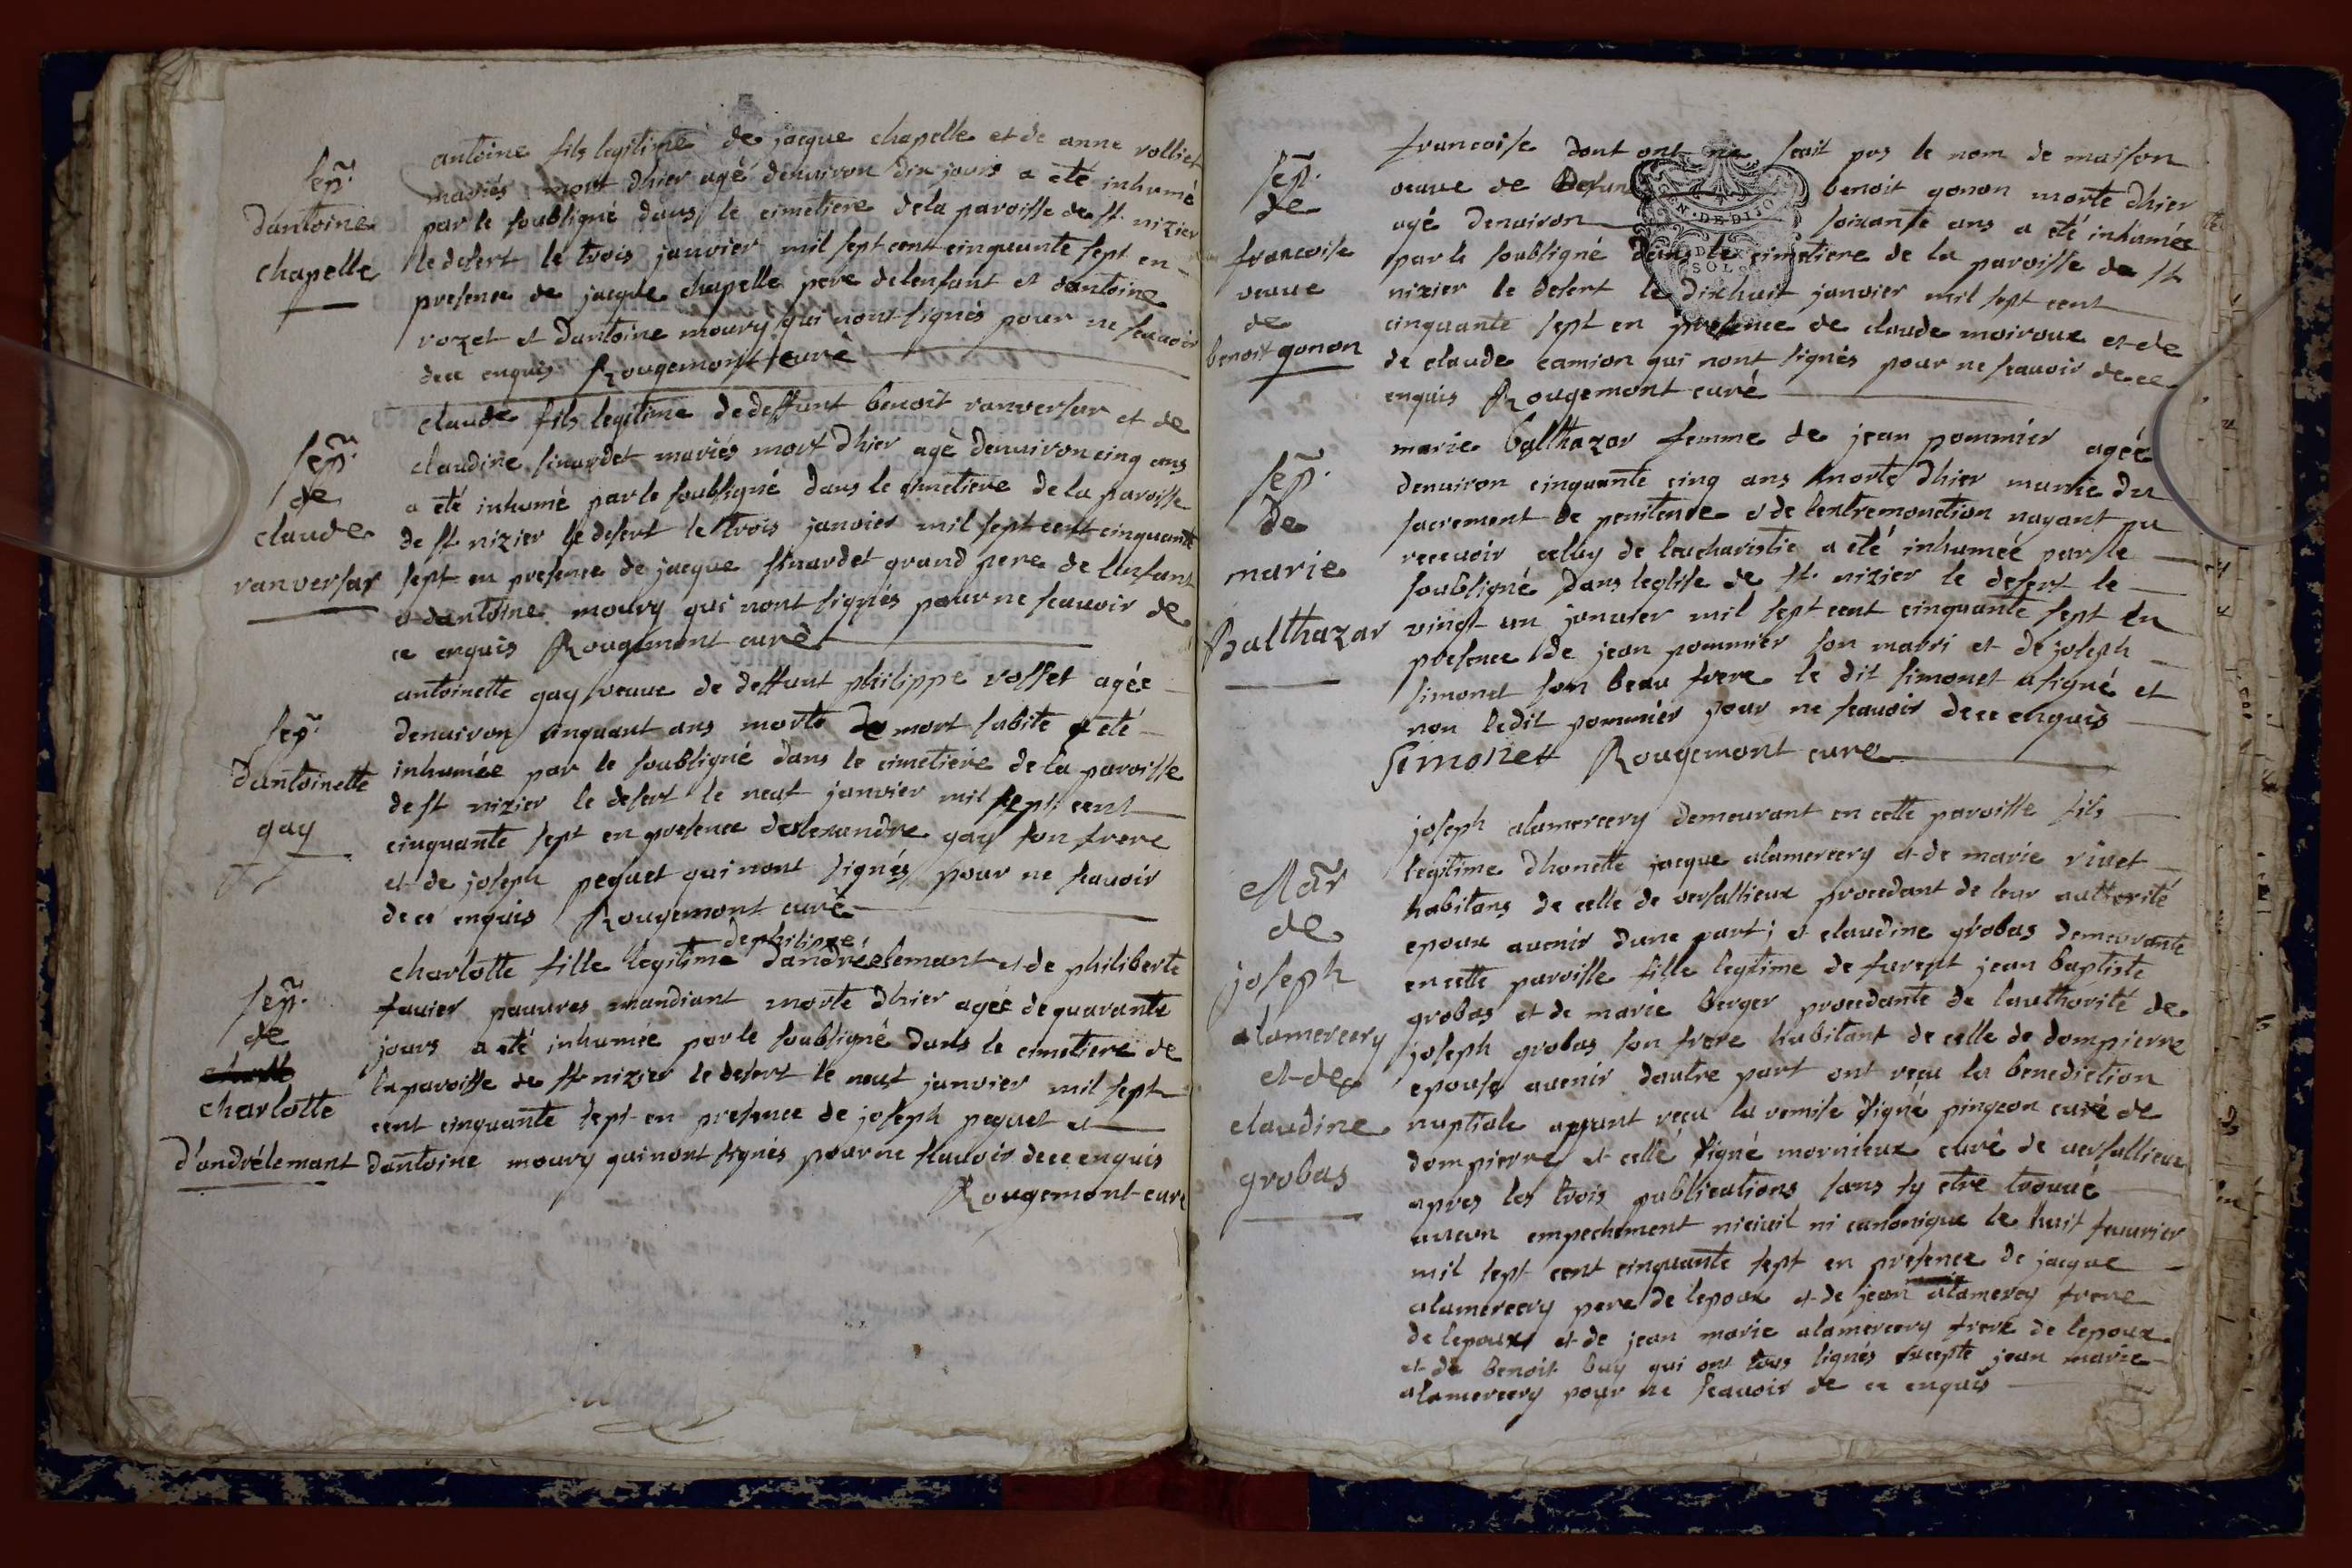 Sep.
dantoine
chapelle
antoine fils legitime de jacque chapelle et de anne rolliet
mariés mort dhier agé denuiron dix jours a eté inhumé
par le soubsigné dans le cimetiere dela paroisse de st. nizier
le desert le trois janvier mil sept cent cinquante sept en
presence de jacque chapelle pere delenfant et dantoine
rozet et dantoine moury qui nont signés pour ne scauoir
dece enquis Rougemont curé
Sep.
de
claude
ranversar
claude fils legitime dedeffunt benoit ranversar et de
claudine sinardet mariés mort dhier agé denuiron cinq ans
a eté inhumé par le soubsigné dans le cimetiere de la paroisse
de st. nizier le desert le trois janvier mil sept cent cinquante
sept en presence de jacque sinardet grand pere de lenfant
et dantoine moury qui nont signés pour ne scauoir de
ce enquis Rougemont curé
Sep.
dantoinette
gay
antoinette gay veuue de deffunt philippe rosset agée
denuiron cinquant ans morte de mort subite a eté
inhumée par le soubsigné dans le cimetiere de la paroisse
de st nizier le desert le neuf janvier mil sept cent
cinquante sept en presence dalexandre gay son frere
et de joseph peguet qui nont signés pour ne scauoir
de ce enquis Rougemont curé
Sep.
de
charlotte
d'andrélemant
de philippe
charlotte fille legitime dandrélemant et de philiberte
fauier pauures mandiant morte dhier agée de quarante
jours a eté inhumée par le soubsigné dans le cimetiere de
la paroisse de st. nizier le desert le neuf janvier mil sept
cent cinquante sept en presence de joseph peguet et
dantoine moury qui nont signés pour ne scauoir dece enquis
Rougemont curé
Sep.
de
francoise
veuue
de
benoit gonon
francoise dont ont ne scait pas le nom de maison
veuue de defunt benoit gonon morte dhier
agé denuiron soixante ans a eté inhumée
par le soubsigné dans le cimetiere de la paroisse de st.
nizier le desert le dixhuit janvier mil sept cent
cinquante sept en presence de claude moiroux et de
de claude camion qui nont signés pour ne scauoir de ce
enquis Rougemont curé
GEN. DE DIJON
SOLS
Sep.
de
marie
Balthazar
marie balthazar femme de jean pommier agée
denuiron cinquante cinq ans morte dhier munie du
sacrement de penitence et de lextremonction nayant pu
receuoir celuy de leucharistie a eté inhumée par le
soubsigné dans leglise de st. nizier le desert le
vingt un janvier mil sept cent cinquante sept en
presence de jean pommier son marri et de joseph
simonet son beau frere le dit simonet a signé et
non ledit pommier pour ne scauoir dece enquis
Simonet Rougemont cure
Mar
de
joseph
alamercery
et de
claudine
grobas
joseph alamercery demeurant en cette paroisse fils
legitime dhonette jacque alamercery et de marie riuet
habitans de celle de versallieux procedant de leur authorité
epoux auenir dune part; et claudine grobas demeurante
en cette paroisse fille legitime de furent jean baptiste
grobas et de marie berger procedante de lauthorité de
joseph grobas son frere habitant de celle de dompierre
epouse auenir dautre part ont reçu la benediction
nuptiale ayant reçu la remise signé pingeon curé de
dompierre et celle signé mornieux curé de versallieux
apres les trois publications sans sy etre trouué
aucun empechement niciuil ni canonique le huit feuurier
mil sept cent cinquante sept en presence de jacque
alamercery pere de lepoux et de jean alamercy frere
de lepoux et de jean marie alamercery frere de lepoux
et de benoit buy qui ont tous signés excepte jean marie
alamercery pour ne scauoir de ce enquis